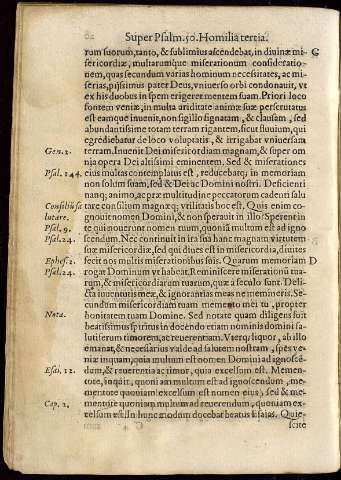 Super Psalm. 50. Homilia tertia.
rum suorum, tanto, & sublimius ascendebat, in diuinæ mi- C
sericordiæ, multarumque miserationum consideratio-
nem, quas secundum varias hominum necessitates, ac mi-
serias, pijssimus pater Deus, vniuerso orbi condonauit, vt
ex his duobus in spem erigeret mentem suam. Priori loco
fontem veniæ, in multa ariditate animæ suæ perscrutatus
est eamque inuenit, non sigillo signatam, & clausam, sed
abundantissime totam terram rigantem, sicut fluuium, qui
Gen. 2. egrediebatur de loco voluptatis, & irrigabat vniuersam
terram. Inuenit Dei misericordiam magnam, & super om
nia opera Dei altissimi eminentem. Sed & miserationes
Psal. 144. eius multas contemplatus est, reducebatq; in memoriam
non solum suam, sed & Dei ac Domini nostri. Deficienti
nanq; animo, ac præ multitudine peccatorum cadenti salu
Consiliũ sa tare consilium magnæq; vtilitatis hoc est. Quis enim co-
lutare. gnouit nomen Domini, & non sperauit in illo? Sperent in
Psal. 9. te qui nouerunt nomen tuum, quoniã multum est ad igno
Psal. 24. scendum. Nec continuit in ira sua hanc magnam virtutem
suæ misericordiæ, sed qui diues est in misericordia, diuites
Ephes. 2. fecit nos multis miserationibus suis. Quarum memoriam D
Psal. 24. rogat Dominum vt habeat. Reminiscere miserationũ tua-
rum, & misericordiarum tuarum, quæ a seculo sunt. Deli-
cta iuuentutis meæ, & ignorantias meas ne memineris. Se-
cundum misericordiam tuam memento mei tu, propter
Nota. bonitatem tuam Domine. Sed notate quàm diligens fuit
beatissimus spiritus in docendo etiam nominis domini sa-
lutiferum timorem, ac reuerentiam. Vterq; liquor, ab illo
emanat, & necessarius valde ad salutem nostram, spes ve-
niæ inquam, quia multum est nomen Domini ad ignoscé-
Esai. 12. dum, & reuerentiæ ac timor, quia excelsum est. Memen-
tote, inquit, quoniam multum est ad ignoscendum, me-
mentote quoniam excelsum est nomen eius; sed & me-
Cap. 2. mentote quoniam multum ad reuerendum, quoniam ex-
celsum est. In hunc modum docebat beatus Esaias. Quie-
scite